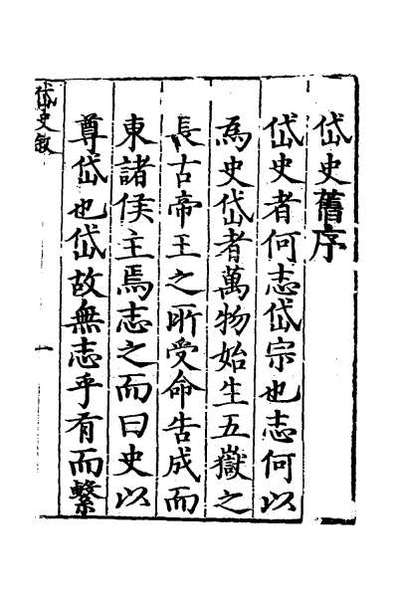 岱史舊序
岱史者何志岱宗也志何以
為史岱者萬物始生五嶽之
長古帝王之所受命告成而
東諸侯主焉志之而曰史以
尊岱也岱故無志乎有而繫
岱史敘
一